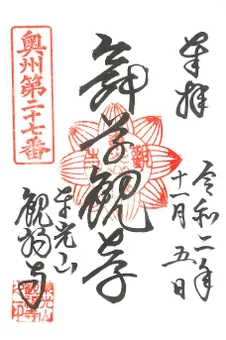 奉拝
令和二年
十一月五日
舞草観音
奥州第二十七番
東光山
観福寺